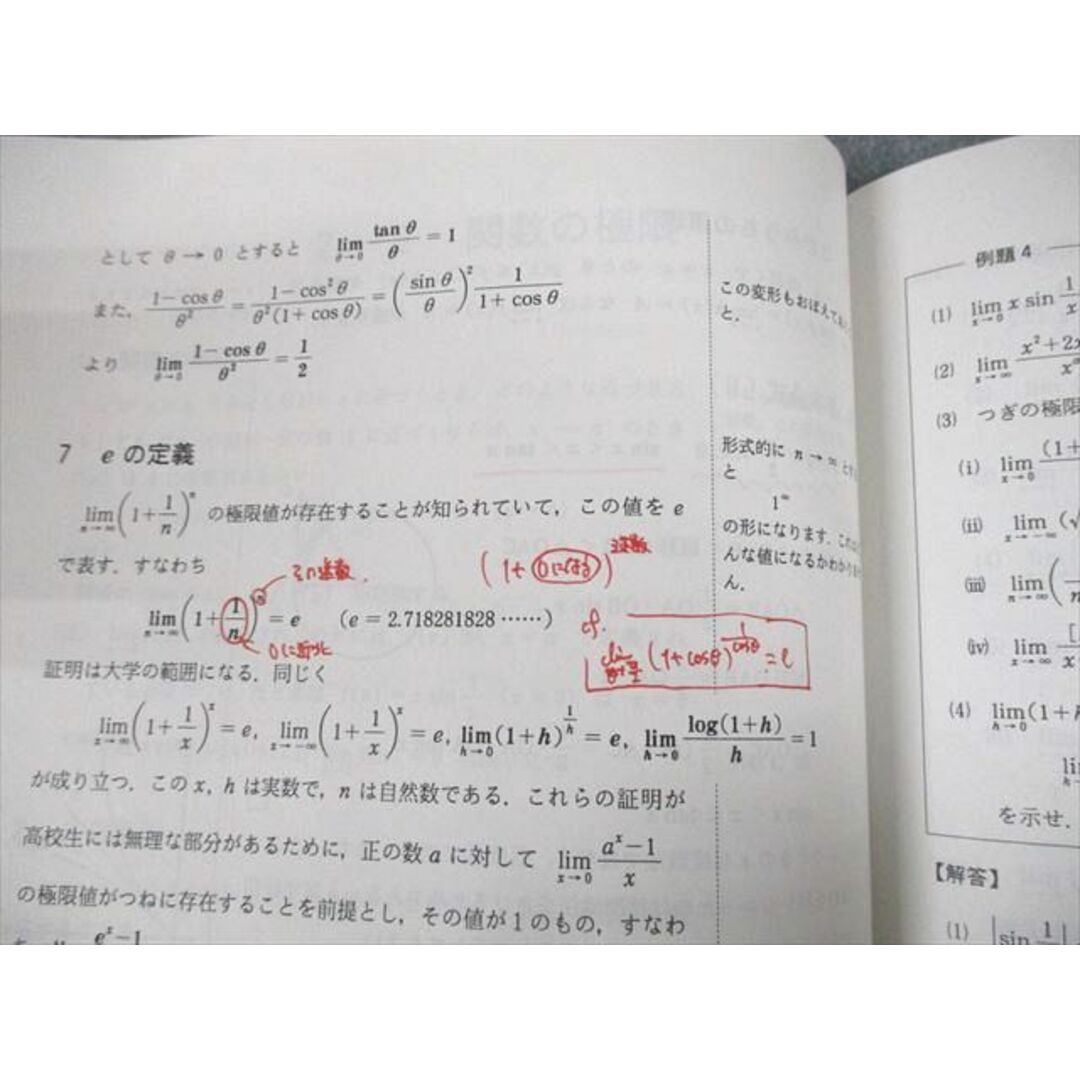 として θ → 0 とすると lim_{θ→0} tan θ/θ = 1
また, (1−cos θ)/θ² = (1−cos² θ)/(θ²(1+cos θ)) = (sin θ/θ)² 1/(1+cos θ)
より lim_{θ→0} (1−cos θ)/θ² = 1/2
この変形もおぼえてお
と.
7 e の定義
lim_{n→∞}(1+1/n)ⁿ の極限値が存在することが知られていて, この値を e
で表す. すなわち
(1+0になる)
lim_{n→∞}(1+1/n)ⁿ = e (e = 2.718281828 ……)
cf.
lim (1+cosθ)^{1/cosθ} = e
証明は大学の範囲になる. 同じく
lim_{x→∞}(1+1/x)^x = e, lim_{x→−∞}(1+1/x)^x = e, lim_{h→0}(1+h)^{1/h} = e, lim_{h→0} log(1+h)/h = 1
が成り立つ. この x, h は実数で, n は自然数である. これらの証明が
高校生には無理な部分があるために, 正の数 a に対して lim_{x→0} (a^x−1)/x
の極限値がつねに存在することを前提とし, その値が1のもの, すなわ
e^x−1
形式的に n→∞
と
1^∞
の形になります. これ
んな値になるかわかりま
ん.
例題 4
(1) lim_{x→0} x sin 1/x
(2) lim_{x→∞} x²+2x
(3) つぎの極限
(i) lim_{x→0} (1+
(ii) lim_{x→−∞} (√
(iii) lim_{n→∞} (
(iv) lim_{x→∞} [
(4) lim_{h→0} (1+h
を示せ.
【解答】
(1) |sin 1